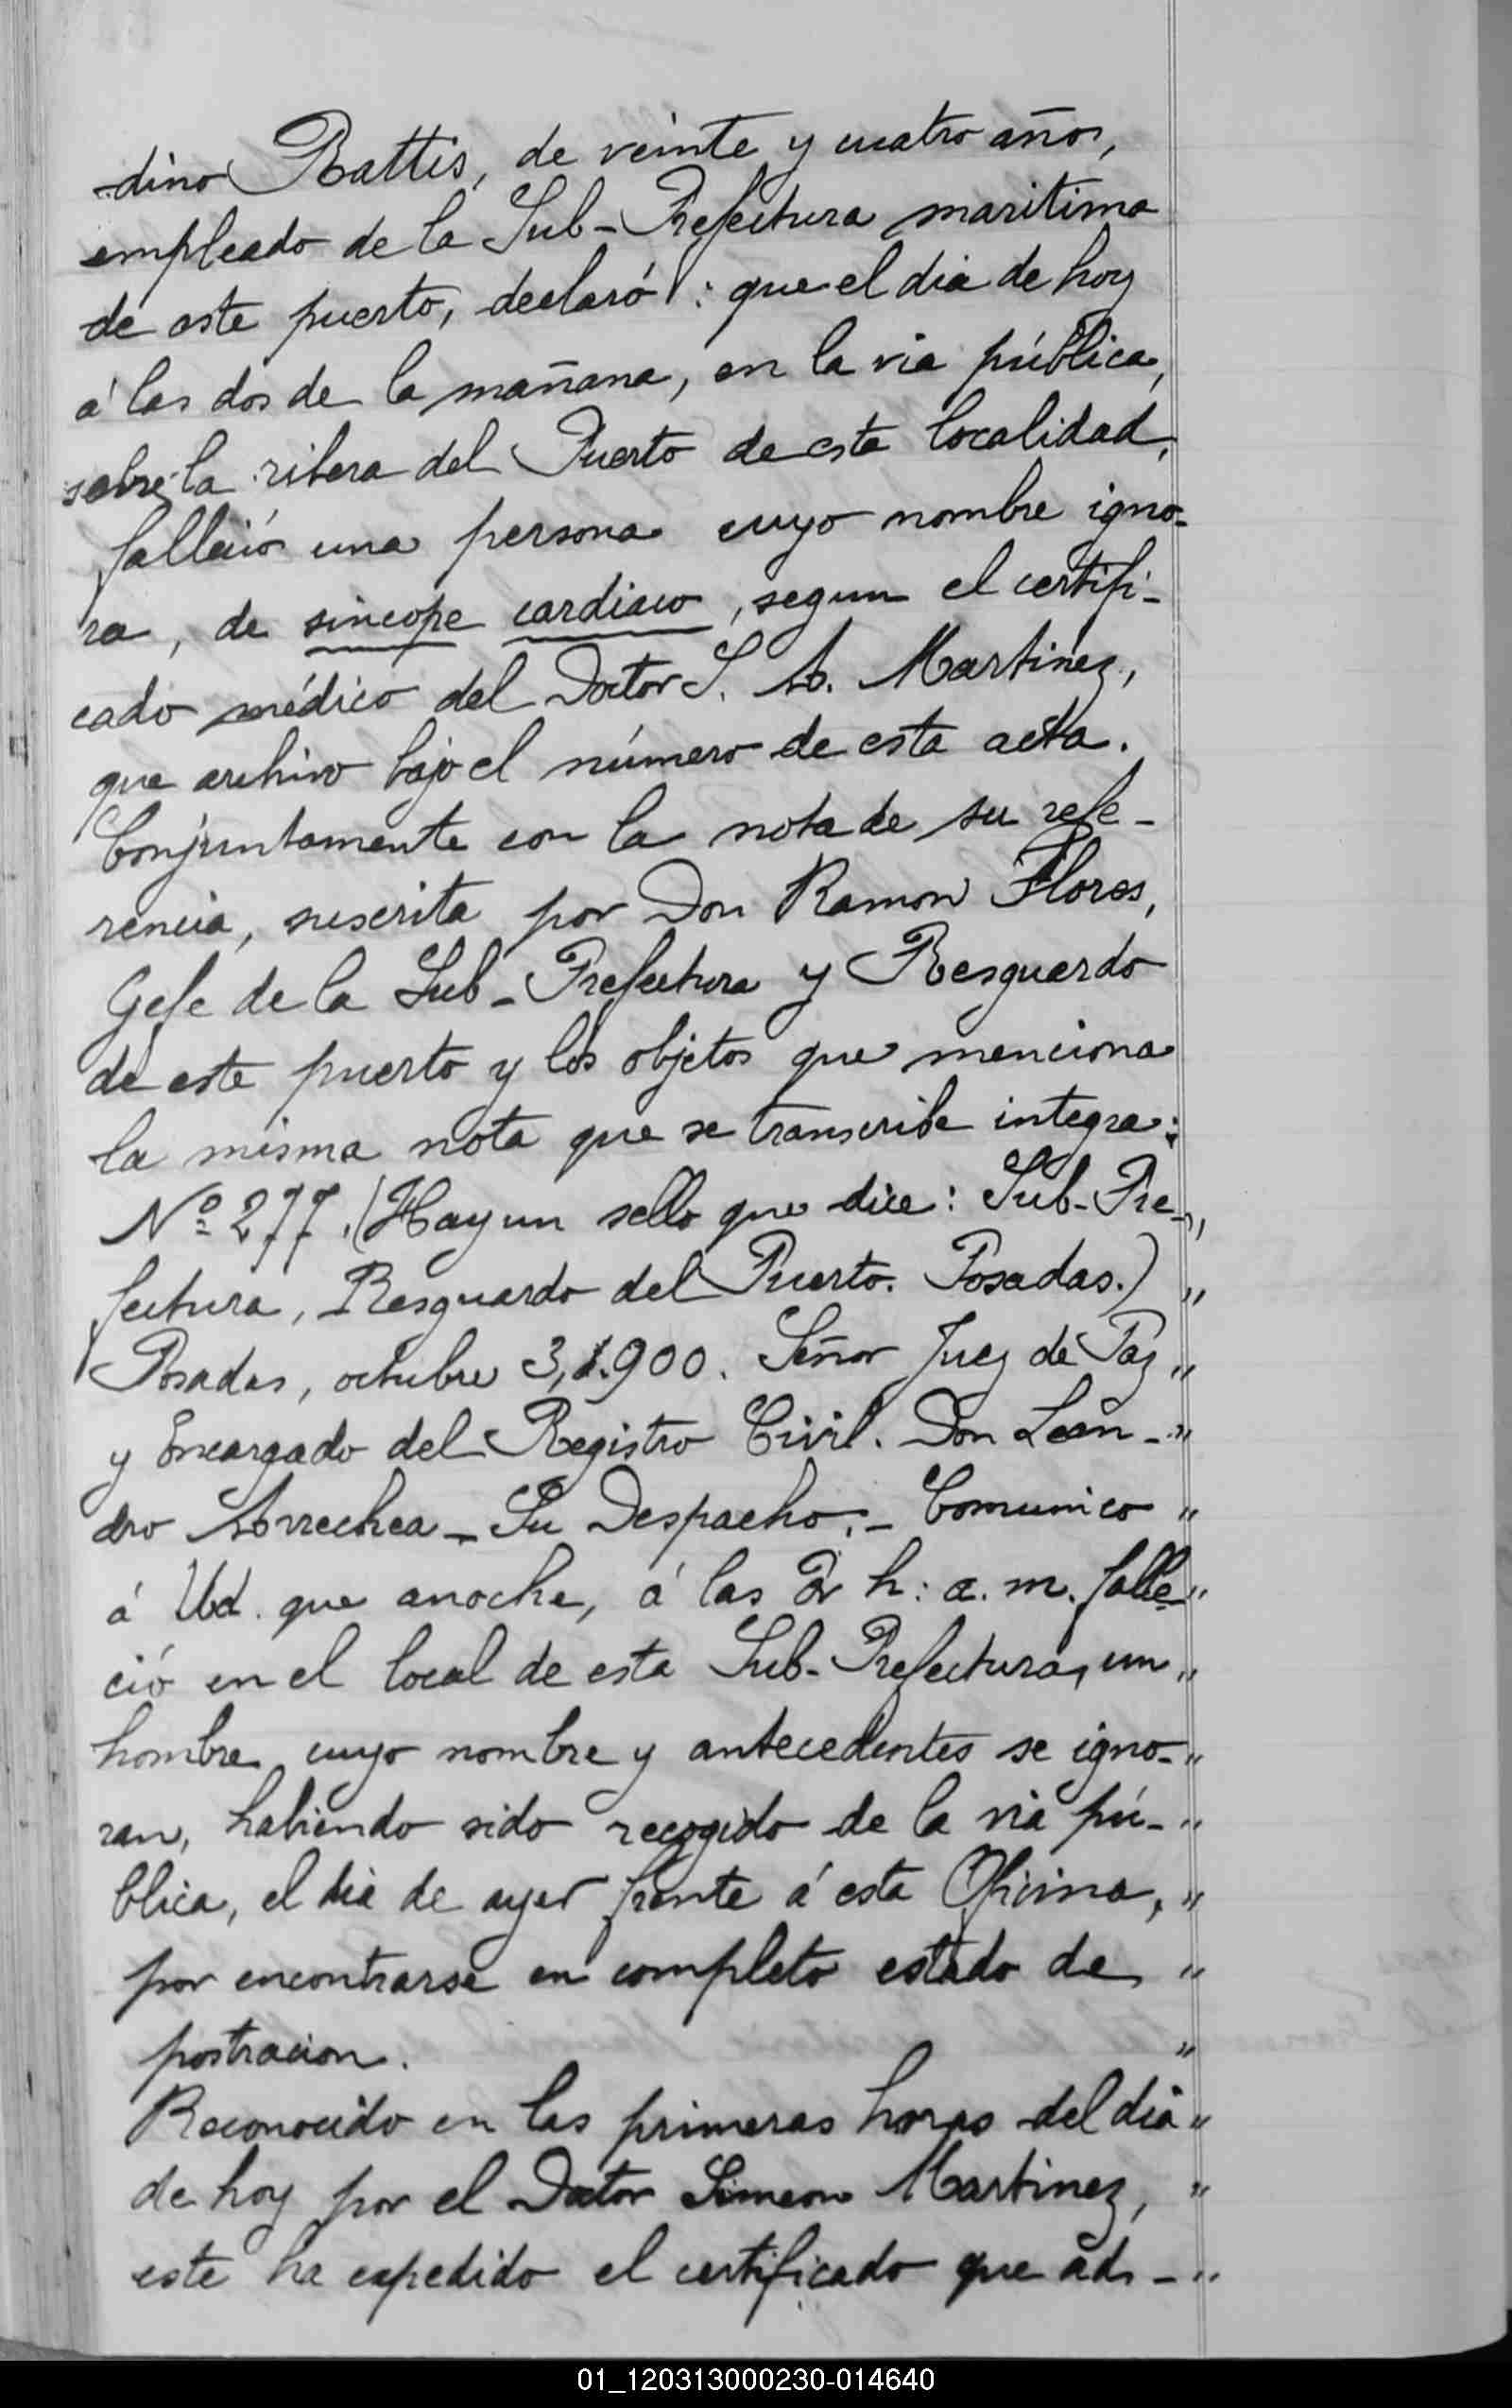 dino Rattis, de veinte y cuatro años,
empleado de la Sub-Prefectura maritima
de este puerto, declaró: que el dia de hoy
á las dos de la mañana, en la via pública,
sobre la ribera del Puerto de esta localidad,
falleció una persona cuyo nombre igno-
ra, de sincope cardiaco, segun el certifi-
cado médico del Doctor S. A. Martinez,
que archivo bajo el número de esta acta.
Conjuntamente con la nota de su refe-
rencia, suscrita por Don Ramon Flores,
Gefe de la Sub-Prefectura y Resguardo
de este puerto y los objetos que menciona
la misma nota que se transcribe integra:
Nº 277. (Hay un sello que dice: Sub-Pre- "
fectura, Resguardo del Puerto. Posadas.) "
Posadas, octubre 3, 1.900. Señor Juez de Paz "
y Encargado del Registro Civil. Don Lean- "
dro Arrechea - Su Despacho. - Comunico "
á Ud. que anoche, á las h: a. m. falle- "
ció en el local de esta Sub-Prefectura, un "
hombre cuyo nombre y antecedentes se igno- "
ran, habiendo sido recogido de la via pú- "
blica, el dia de ayer frente á esta Oficina, "
por encontrarse en completo estado de "
postracion. "
Reconocido en las primeras horas del dia "
de hoy por el Doctor Simeon Martinez, "
este ha expedido el certificado que ad- "
01_120313000230-014640